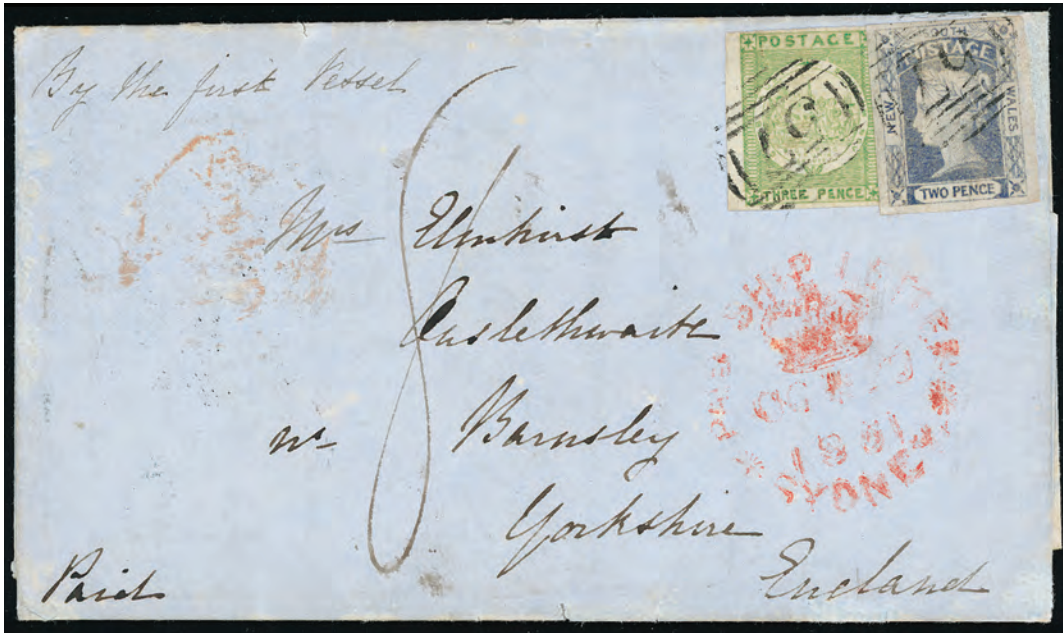 By the first Vessel
POSTAGE
THREE PENCE
SOUTH
POSTAGE
NEW
WALES
TWO PENCE
57
Mrs Elmhirst
Ouslethwaite
nr Barnsley
Yorkshire
England
Paid
8
PAID SHIP LETTER
OC
1851
SYDNEY